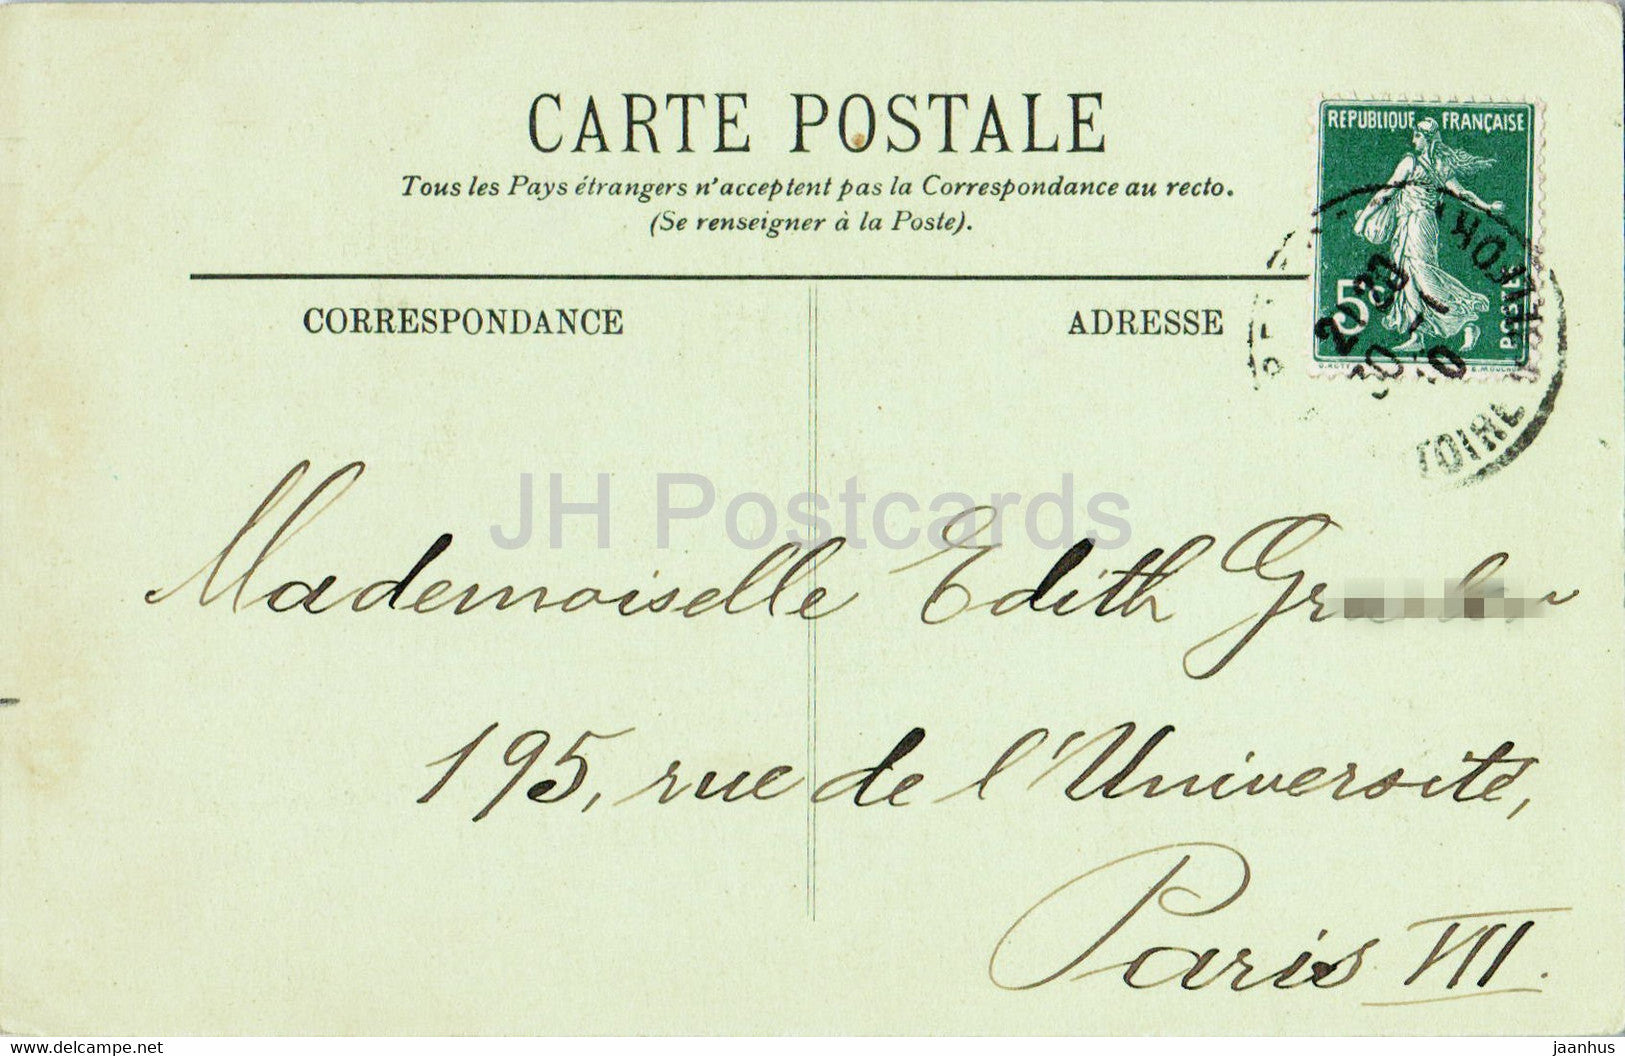 CARTE POSTALE
Tous les Pays étrangers n'acceptent pas la Correspondance au recto.
(Se renseigner à la Poste).
REPUBLIQUE FRANÇAISE
5
POSTES
21 30
30 -1
10
CORRESPONDANCE
ADRESSE
JH Postcards
Mademoiselle Edith
195, rue de l'Université,
Paris VII.
www.delcampe.net
jaanhus